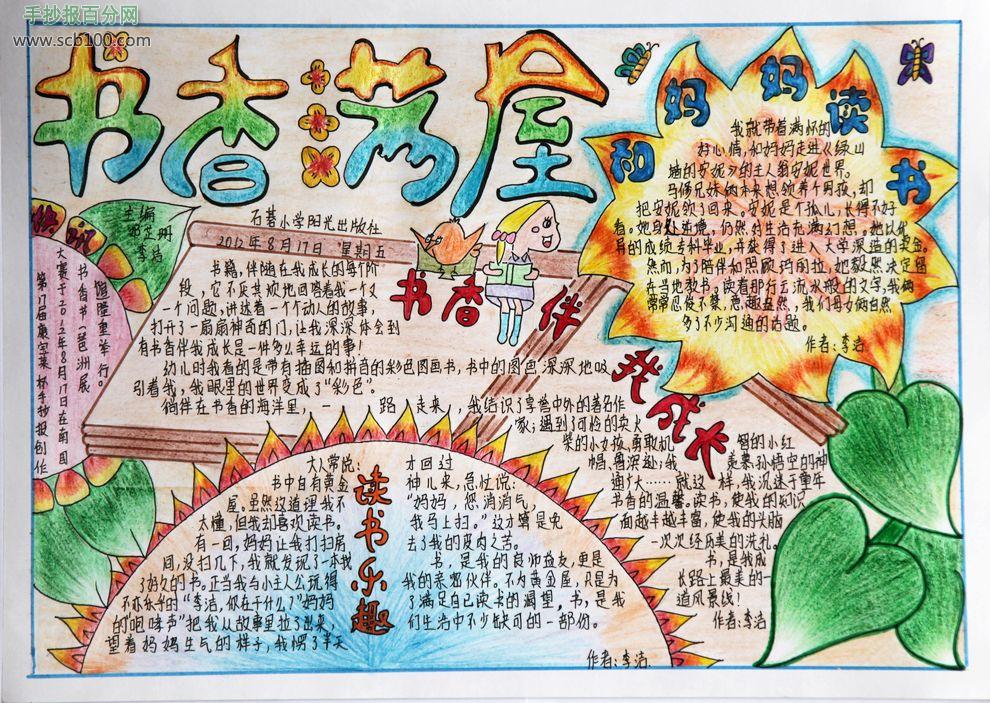 手抄报百分网
www.scb100.com
书香满屋
快讯
主编
李洁
石碁小学阳光出版社
2012年8月17日 星期五
书香节—琶洲展
馆隆重举行。
大赛于2012年8月17日在南国
第17届康宝莱杯手抄报创作
书香伴我成长
书籍,伴随在我成长的每个阶
段,它不厌其烦地回答着我一个又
一个问题,讲述着一个个动人的故事,
打开了一扇扇神奇的门,让我深深体会到
有书香伴我成长是一件多么幸运的事!
幼儿时我看的是带有插图和拼音的彩色图画书,书中的图色深深地吸
引着我,我眼里的世界变成了“彩色”。
徜徉在书香的海洋里,一路走来,我结识了享誉中外的著名作
家;遇到了可怜的卖火
柴的小女孩、勇敢机智的小红
帽、鲁滨逊;我羡慕孙悟空的神
通广大……就这样,我沉迷于童年
书香的温馨。读书,使我的知识
面越丰越丰富,使我的头脑
一次次经历美的洗礼。
书,是我成
长路上最美的一
道风景线!
作者:李洁
和妈妈读书
我就带着满怀的
好心情,和妈妈走进《绿山
墙的安妮》的主人翁安妮世界。
马修兄妹俩本来想领养个男孩,却
把安妮领了回来。安妮是个孤儿,长得不好
看。她身处逆境,仍然对生活充满幻想。她以优
异的成绩专科毕业,并获得了进入大学深造的奖金。
然而,为了陪伴和照顾玛丽拉,她毅然决定留
在当地教书。读着那行云流水般的文字,我俩
常常忍俊不禁,意趣盎然,我们母女俩自然
多了不少沟通的话题。
作者:李洁
读书乐趣
大人常说:
书中自有黄金
屋。虽然这道理我不
太懂,但我却喜欢读书。
有一回,妈妈让我打扫房
间,没扫几下,我就发现了一本我
了好久的书。正当我与小主人公玩得
不亦乐乎的“李洁,你在干什么?”妈妈
的“咆哮声”把我从故事里拉了出来,
望着妈妈生气的样子,我愣了半天
才回过
神儿来,急忙说:
“妈妈,您消消气,
我马上扫。”这才算是免
去了我的皮肉之苦。
书,是我的良师益友,更是
我的亲密伙伴。不为黄金屋,只是为
了满足自己读书的渴望,书,是我
们生活中不少缺可的一部份。
作者:李洁